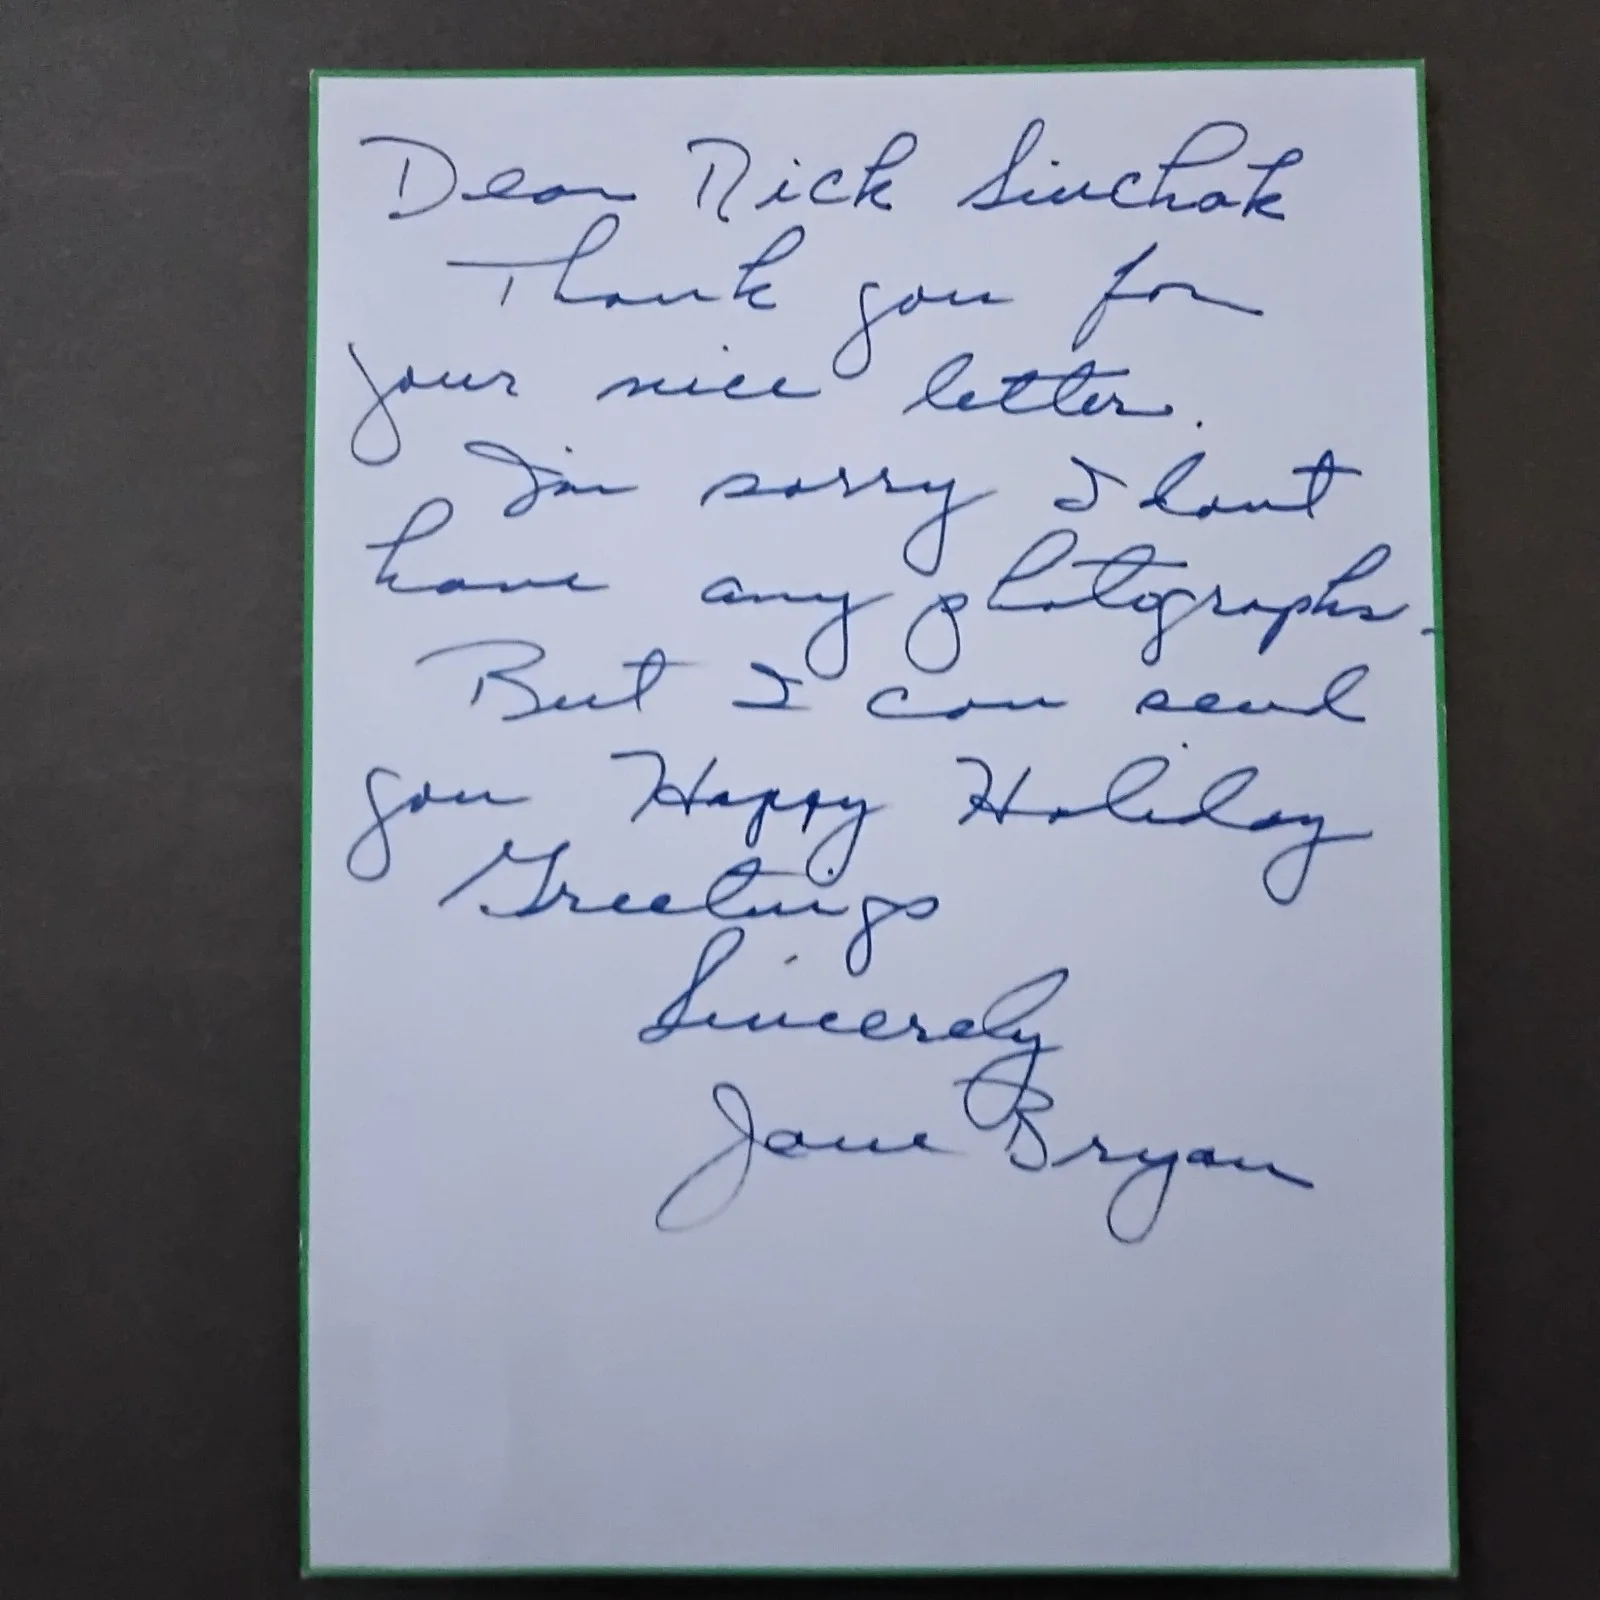 Dear Rick Sinchak
Thank you for
your nice letter.
I'm sorry I dont
have any photographs.
But I can send
you Happy Holiday
Greetings
Sincerely
Jane Bryan